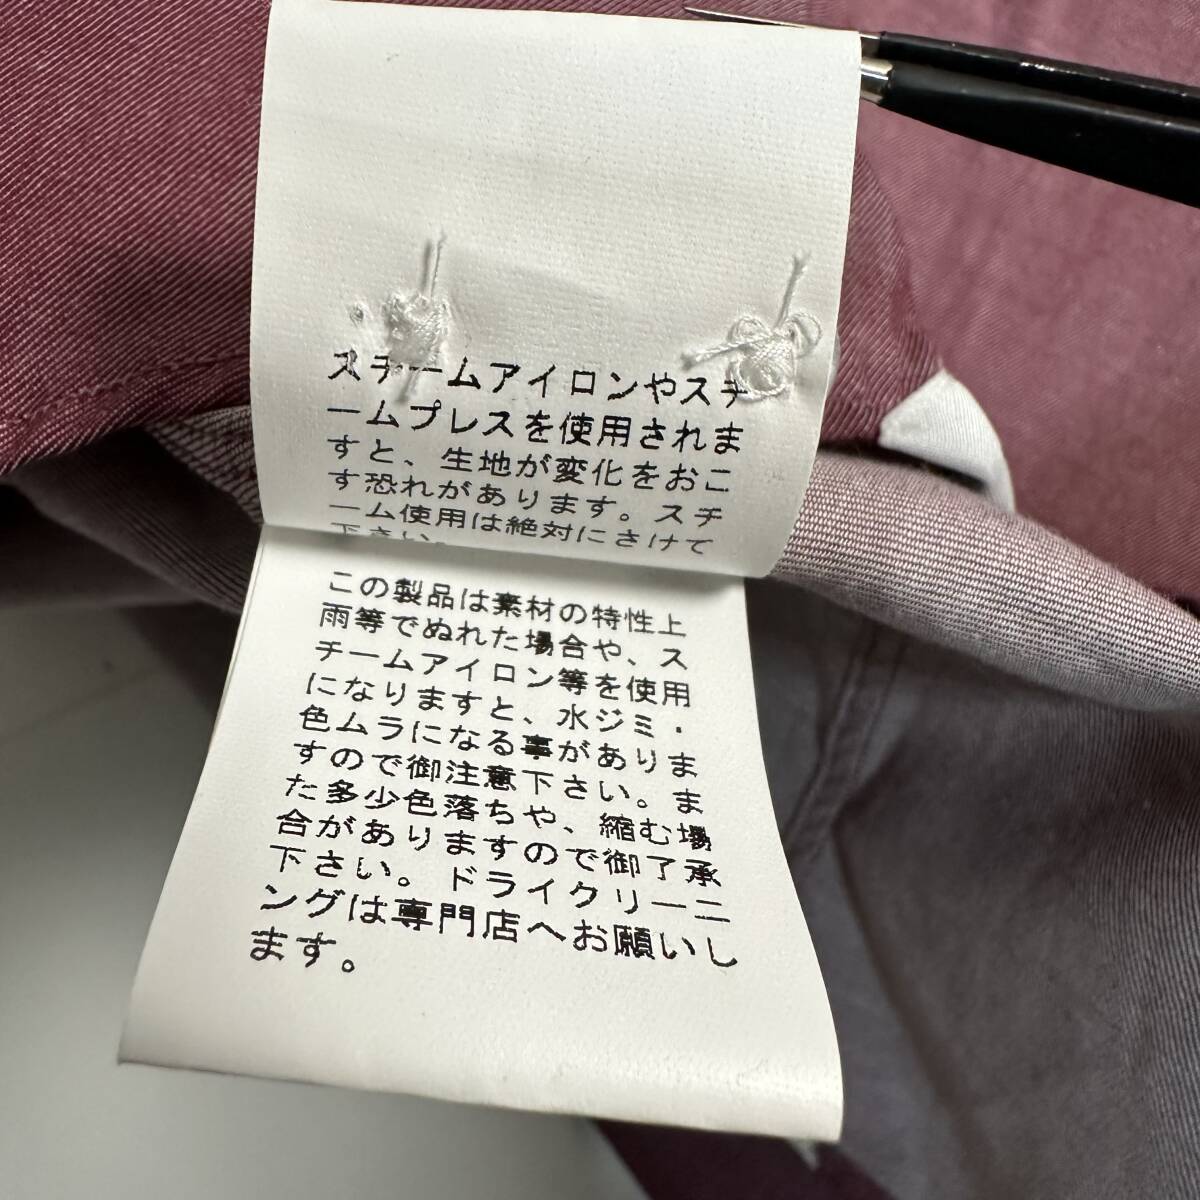 スチームアイロンやスチ
ームプレスを使用されま
すと、生地が変化をおこ
す恐れがあります。スチ
ーム使用は絶対にさけて
下さい。
この製品は素材の特性上
雨等でぬれた場合や、ス
チームアイロン等を使用
になりますと、水ジミ・
色ムラになる事がありま
すので御注意下さい。ま
た多少色落ちや、縮む場
合がありますので御了承
下さい。ドライクリーニ
ングは専門店へお願いし
ます。